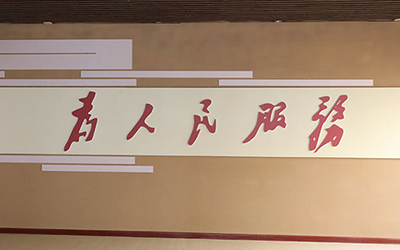 为人民服务